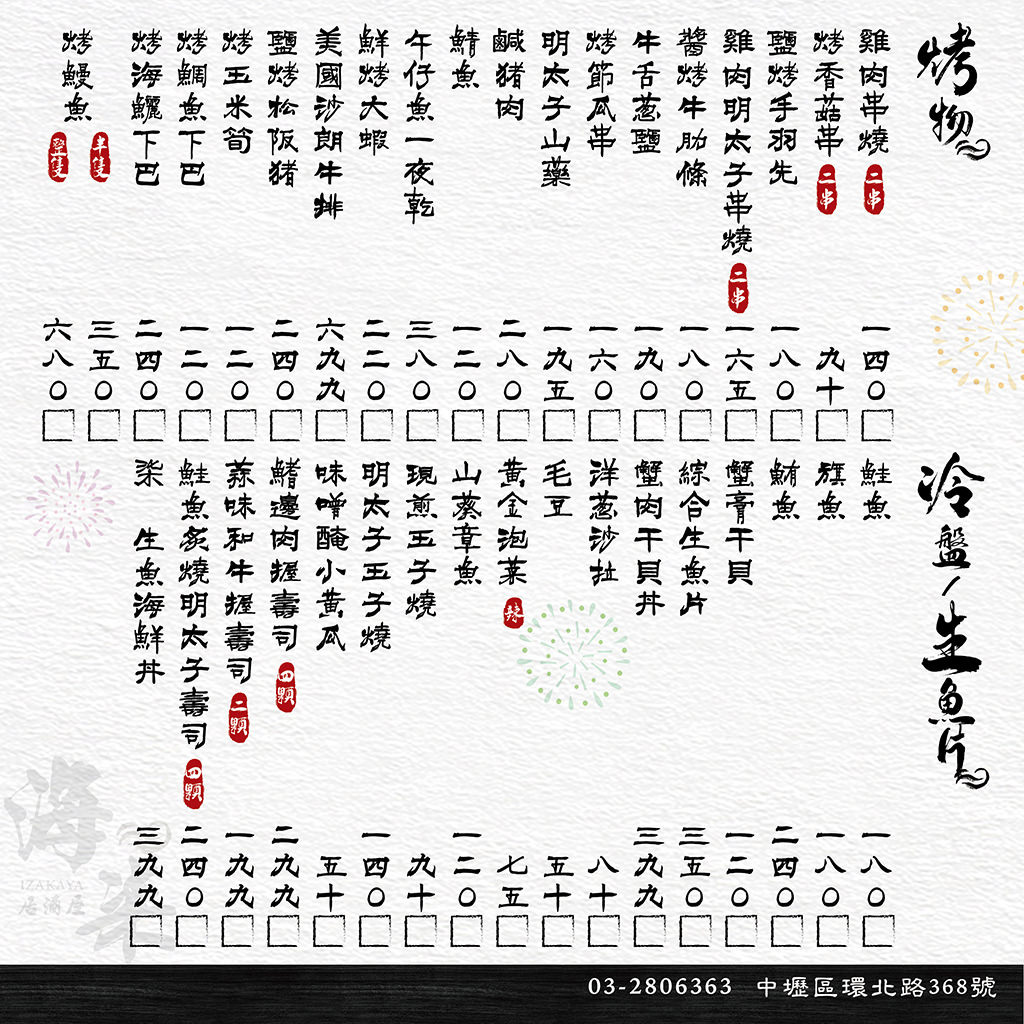 烤物
雞肉串燒 二串 一四〇
烤香菇串 二串 九十
鹽烤手羽先 一八〇
雞肉明太子串燒 二串 一六五
醬烤牛肋條 一八〇
牛舌蔥鹽 一九〇
烤節瓜串 一六〇
明太子山藥 一九五
鹹豬肉 二八〇
鯖魚 一二〇
午仔魚一夜乾 三八〇
鮮烤大蝦 二二〇
美國沙朗牛排 六九九
鹽烤松阪豬 二四〇
烤玉米筍 一二〇
烤鯛魚下巴 一二〇
烤海鱺下巴 二四〇
烤鰻魚
半隻 三五〇
整隻 六八〇
冷盤/生魚片
鮭魚 一八〇
旗魚 一八〇
鮪魚 二四〇
蟹膏干貝 一二〇
綜合生魚片 三五〇
蟹肉干貝丼 三九九
洋蔥沙拉 八十
毛豆 五十
黃金泡菜 辣 七五
山葵章魚 一二〇
現煎玉子燒 九十
明太子玉子燒 一四〇
味噌醃小黃瓜 五十
鰭邊肉握壽司 四顆 二九九
蒜味和牛握壽司 二顆 一九九
鮭魚炙燒明太子壽司 四顆 二四〇
柒 生魚海鮮丼 三九九
海柒
IZAKAYA
居酒屋
03-2806363 中壢區環北路368號